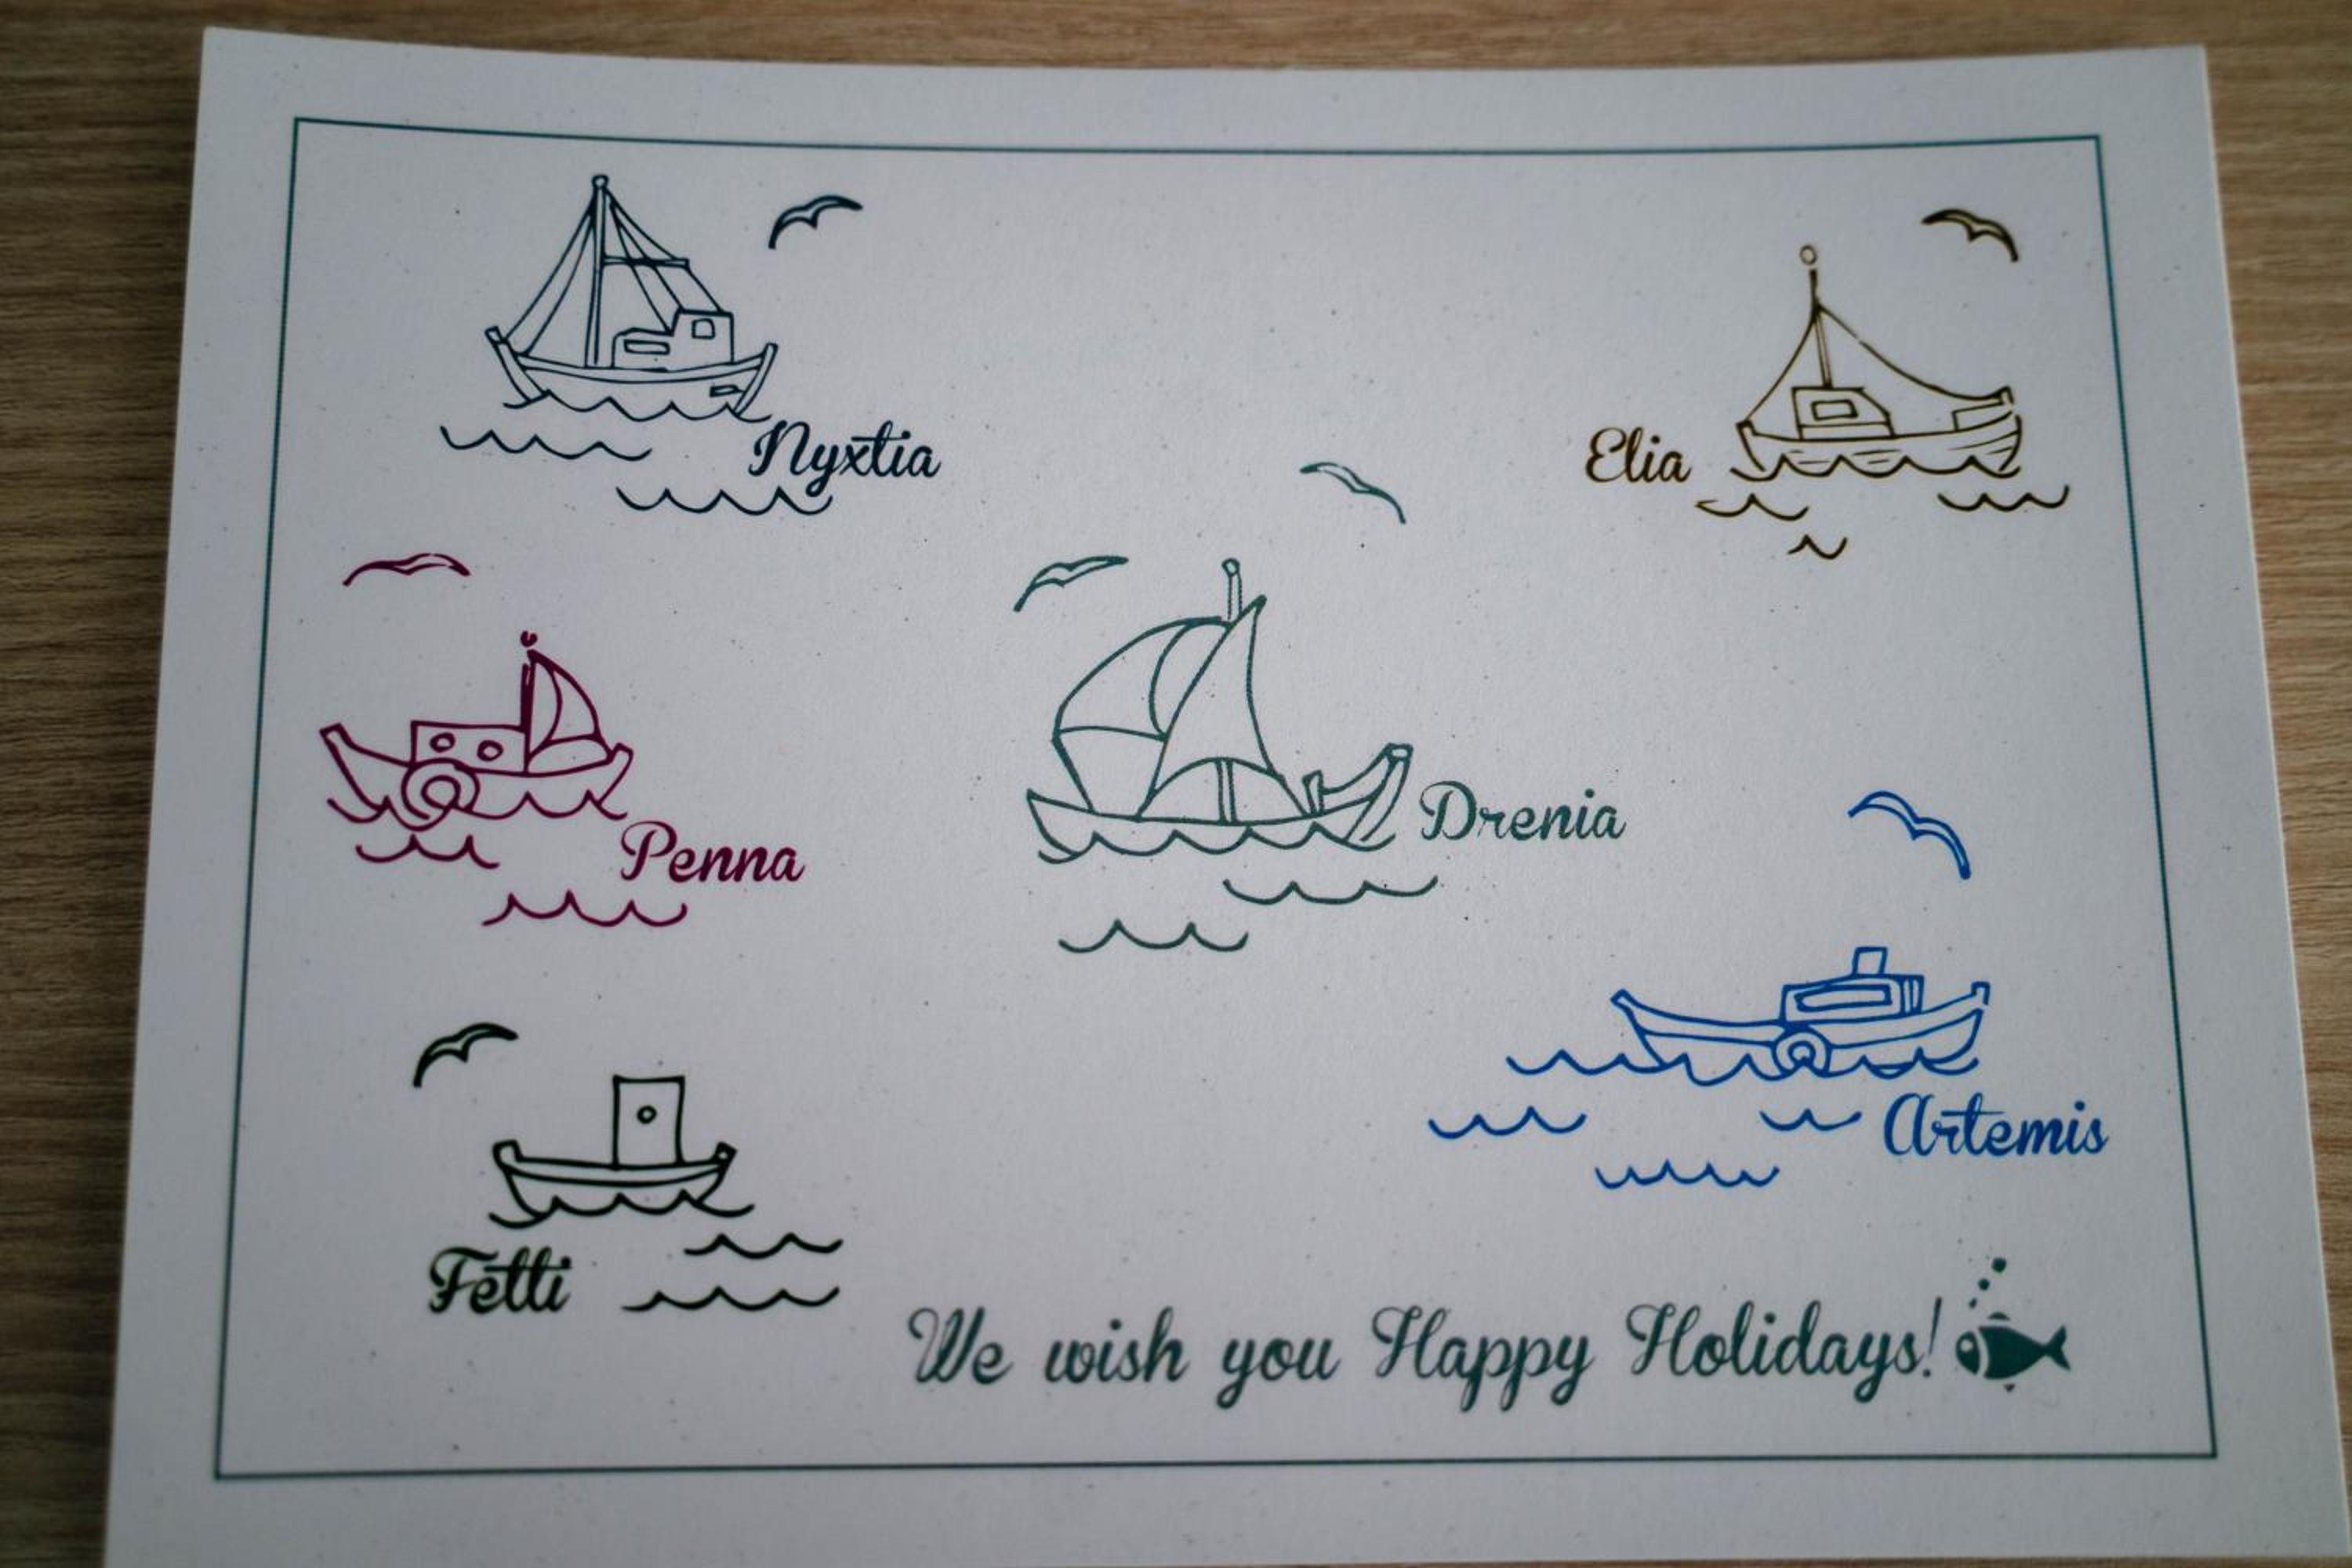 Nyxtia
Elia
Penna
Drenia
Artemis
Fetti
We wish you Happy Holidays!